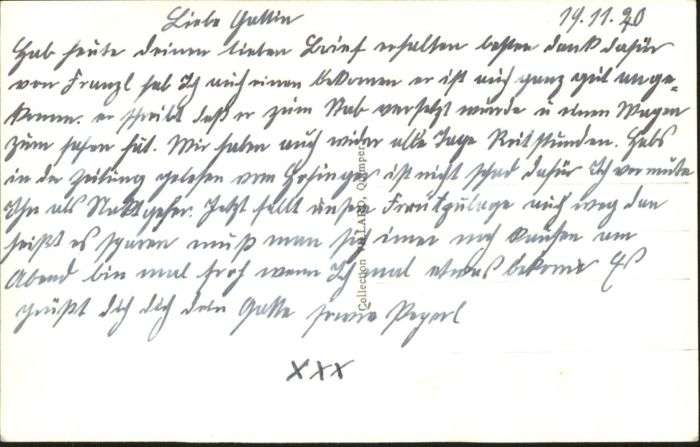 Liebe Gattin 19.11.20
Hab heute deinen lieben Brief erhalten besten dank dafür
von Franzl hab Ich auch einen bekomen er ist auch ganz gut ange-
komen. er schreibt daß er zum Stab versetzt wurde u einen Wagen
zum fahren hat. Wir haben auch wider alle Tage Reitstunden. Habs
in der Zeitung gelesen vom ist nicht schad dafür Ich vermute
Ihn als. Jetzt fällt unsere Frontzulage auch weg dan
heißt es sparen muß man sich imer noch kaufen am
Abend bin mal froh wenn Ich mal etwas bekome Es
grüßt dich dich dein Gatte sowie
XXX
Collection VILLARD, Quimper